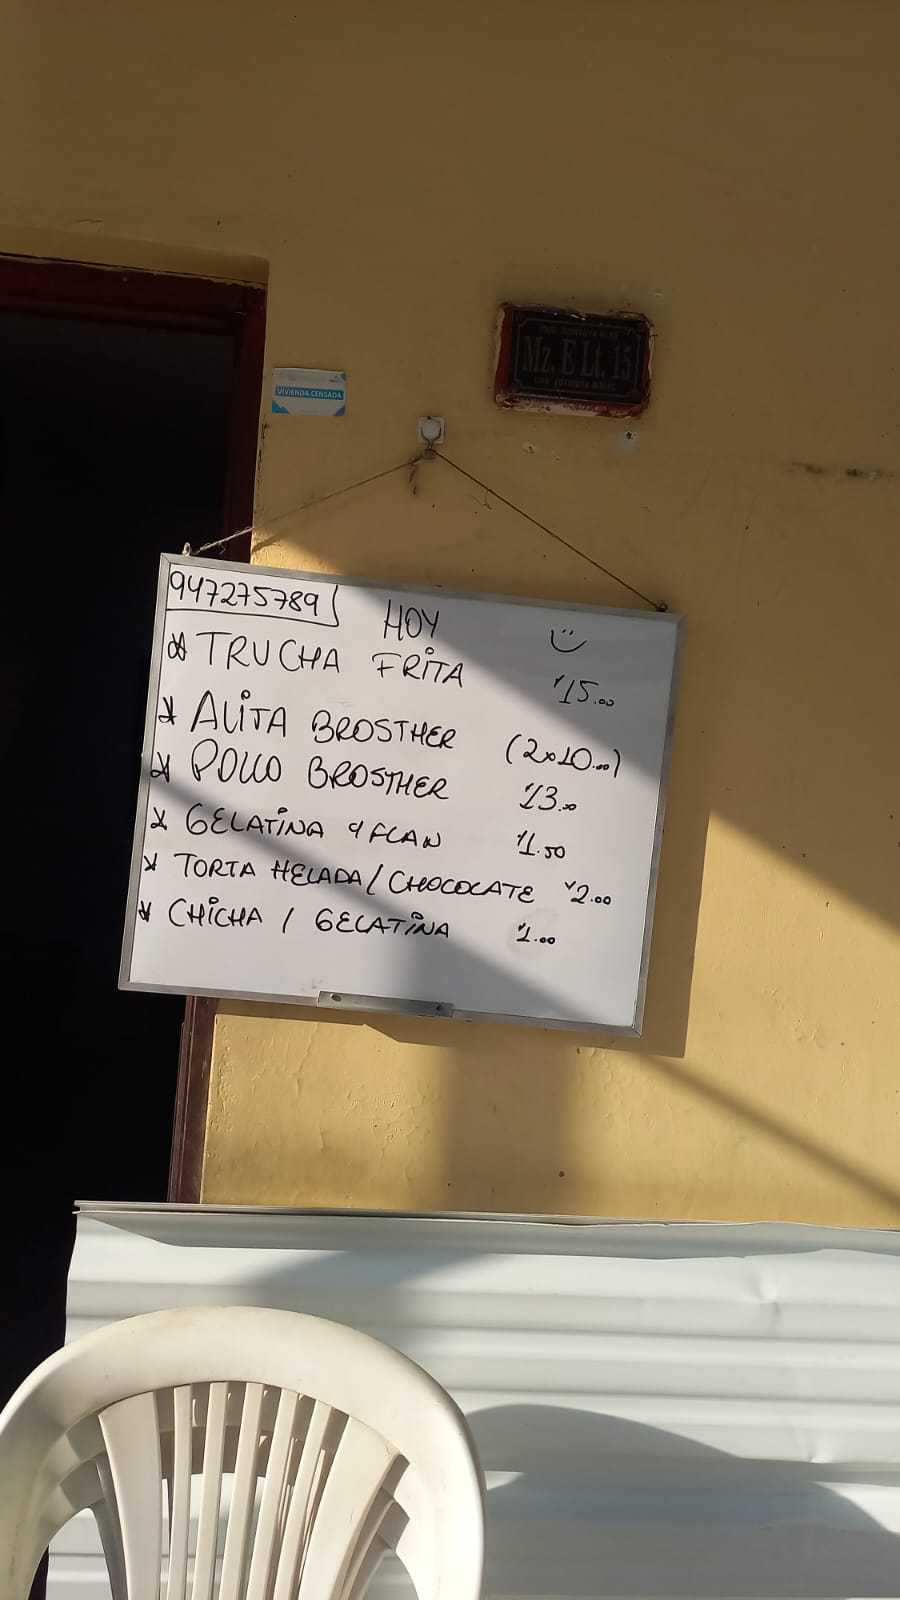 Mz. E Lt. 15
VIVIENDA CENSADA
947275789 HOY
TRUCHA FRITA 15.00
ALITA BROSTHER (2x10.00)
POLLO BROSTHER 13.00
GELATINA y FLAN 1.50
TORTA HELADA / CHOCOLATE 2.00
CHICHA / GELATINA 1.00